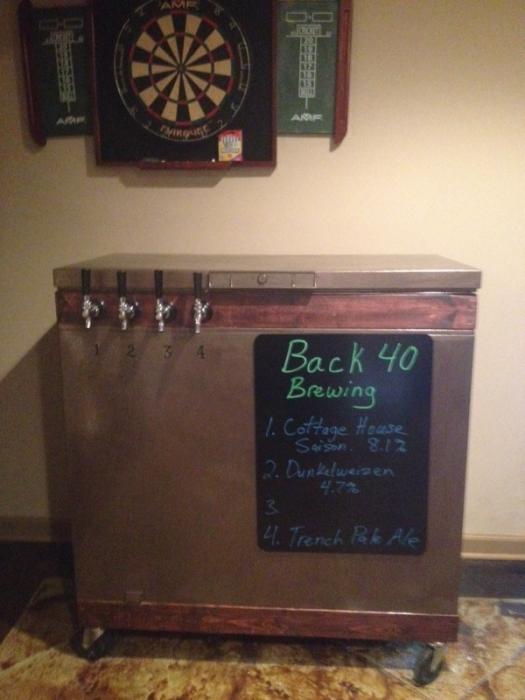 AMF
CRICKET
20
19
18
17
16
15
BULL
AMF
CRICKET
20
19
18
17
16
15
BULL
AMF
1 2 3 4
Back 40
Brewing
1. Cottage House
Saison. 8.1%
2. Dunkelweizen
4.7%
3.
4. Trench Pale Ale